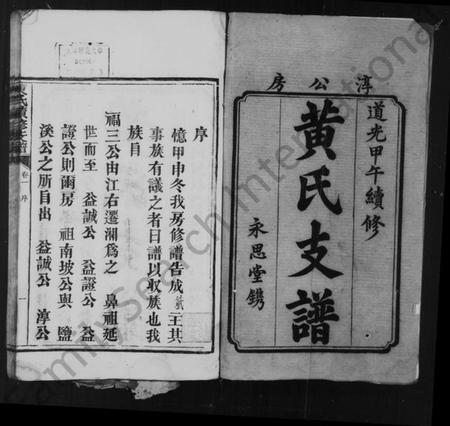 淳公房
道光甲午續修
黃氏支譜
永思堂鐫
序
憶甲申冬我房修譜告成 王其
事族有議之者曰譜以収族也我
族自
福三公由江右遷湖為之 鼻祖延
世而至 益誠公 益證公 益
證公則爾房 祖南坡公與 鹽
溪公之所自出 益誠公 淳公
卷一 序
FamilySearch International